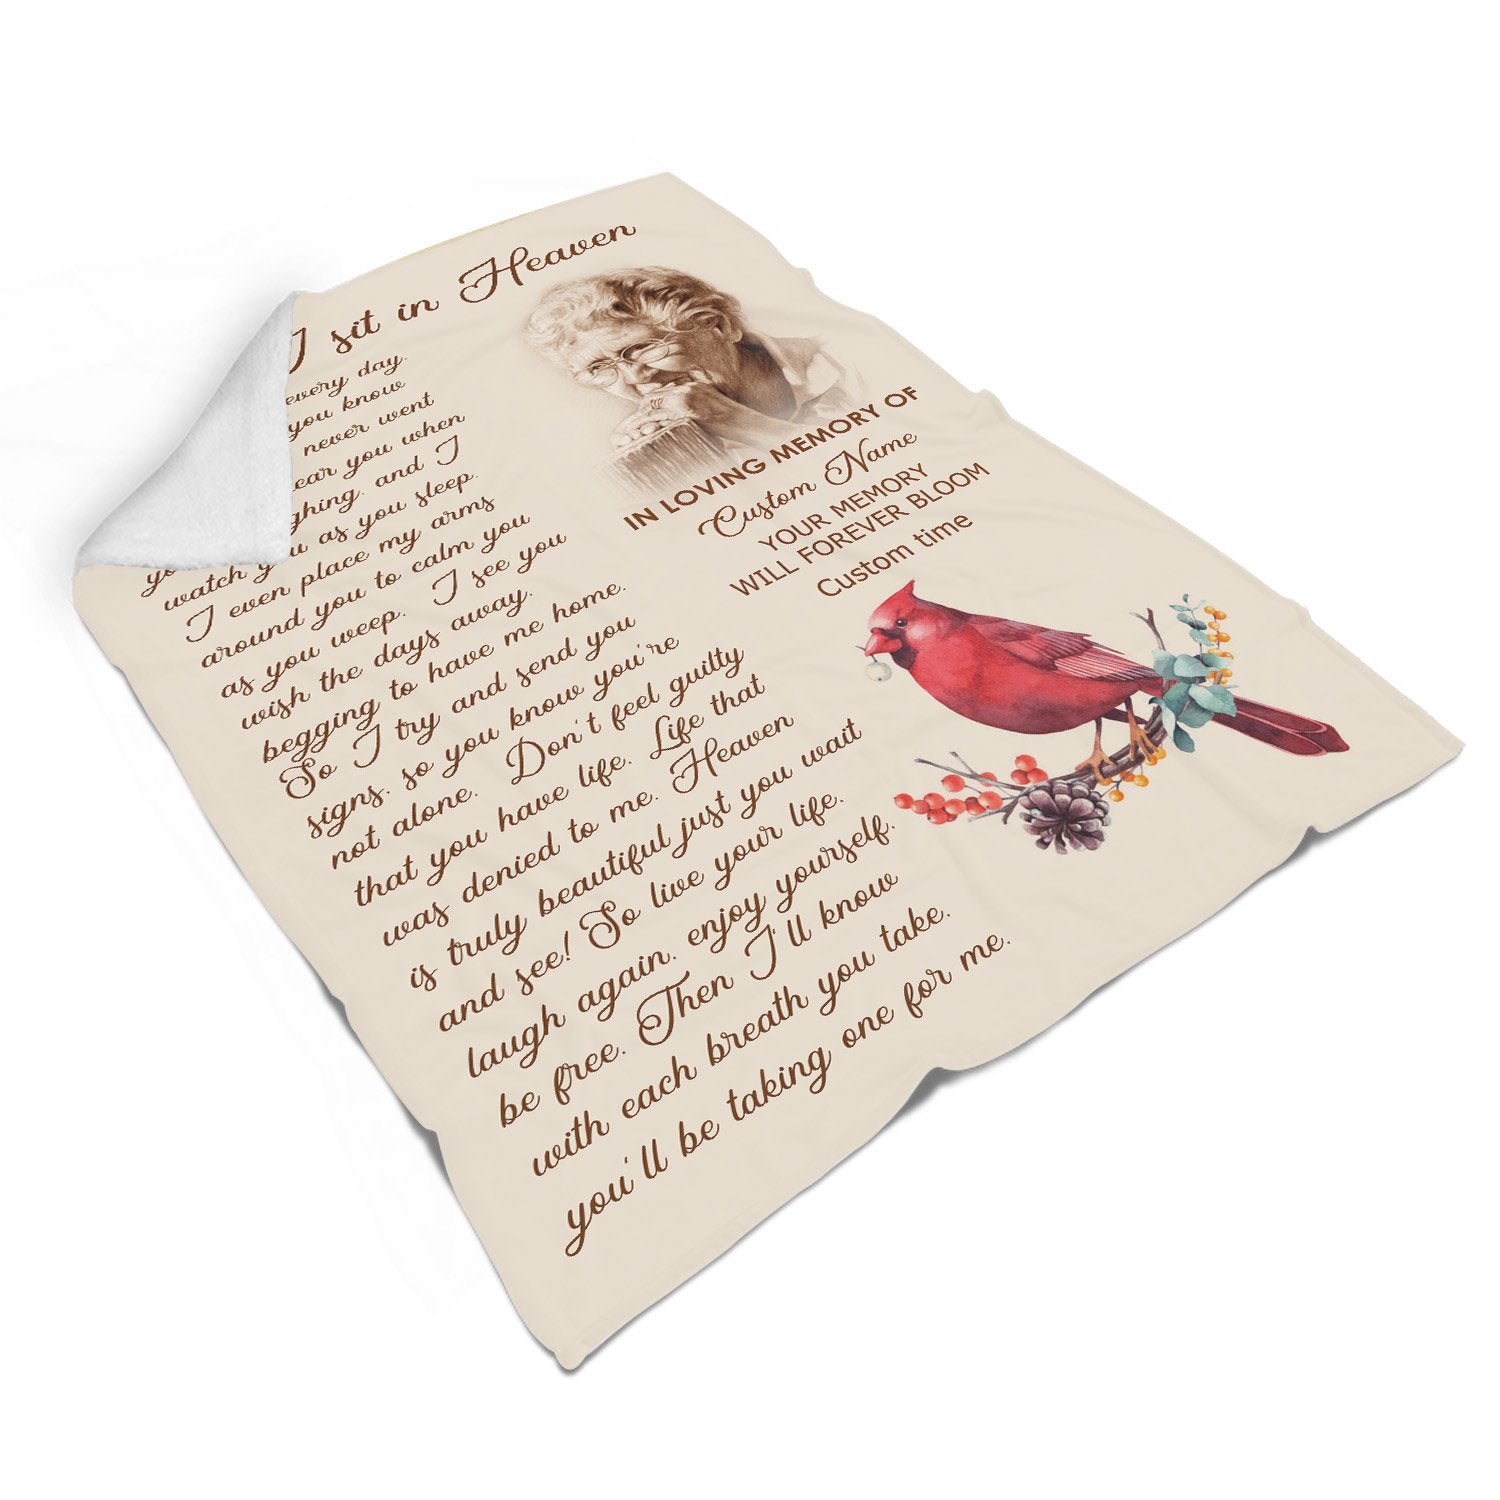 I sit in Heaven
every day.
you know
never went
ear you when
ghing, and I
watch as you sleep.
I even place my arms
around you to calm you
as you weep. I see you
wish the days away.
begging to have me home.
So I try and send you
signs, so you know you're
not alone. Don't feel guilty
that you have life. Life that
was denied to me. Heaven
is truly beautiful just you wait
and see! So live your life.
laugh again, enjoy yourself.
be free. Then I'll know
with each breath you take.
you'll be taking one for me.
IN LOVING MEMORY OF
Custom Name
YOUR MEMORY
WILL FOREVER BLOOM
Custom time